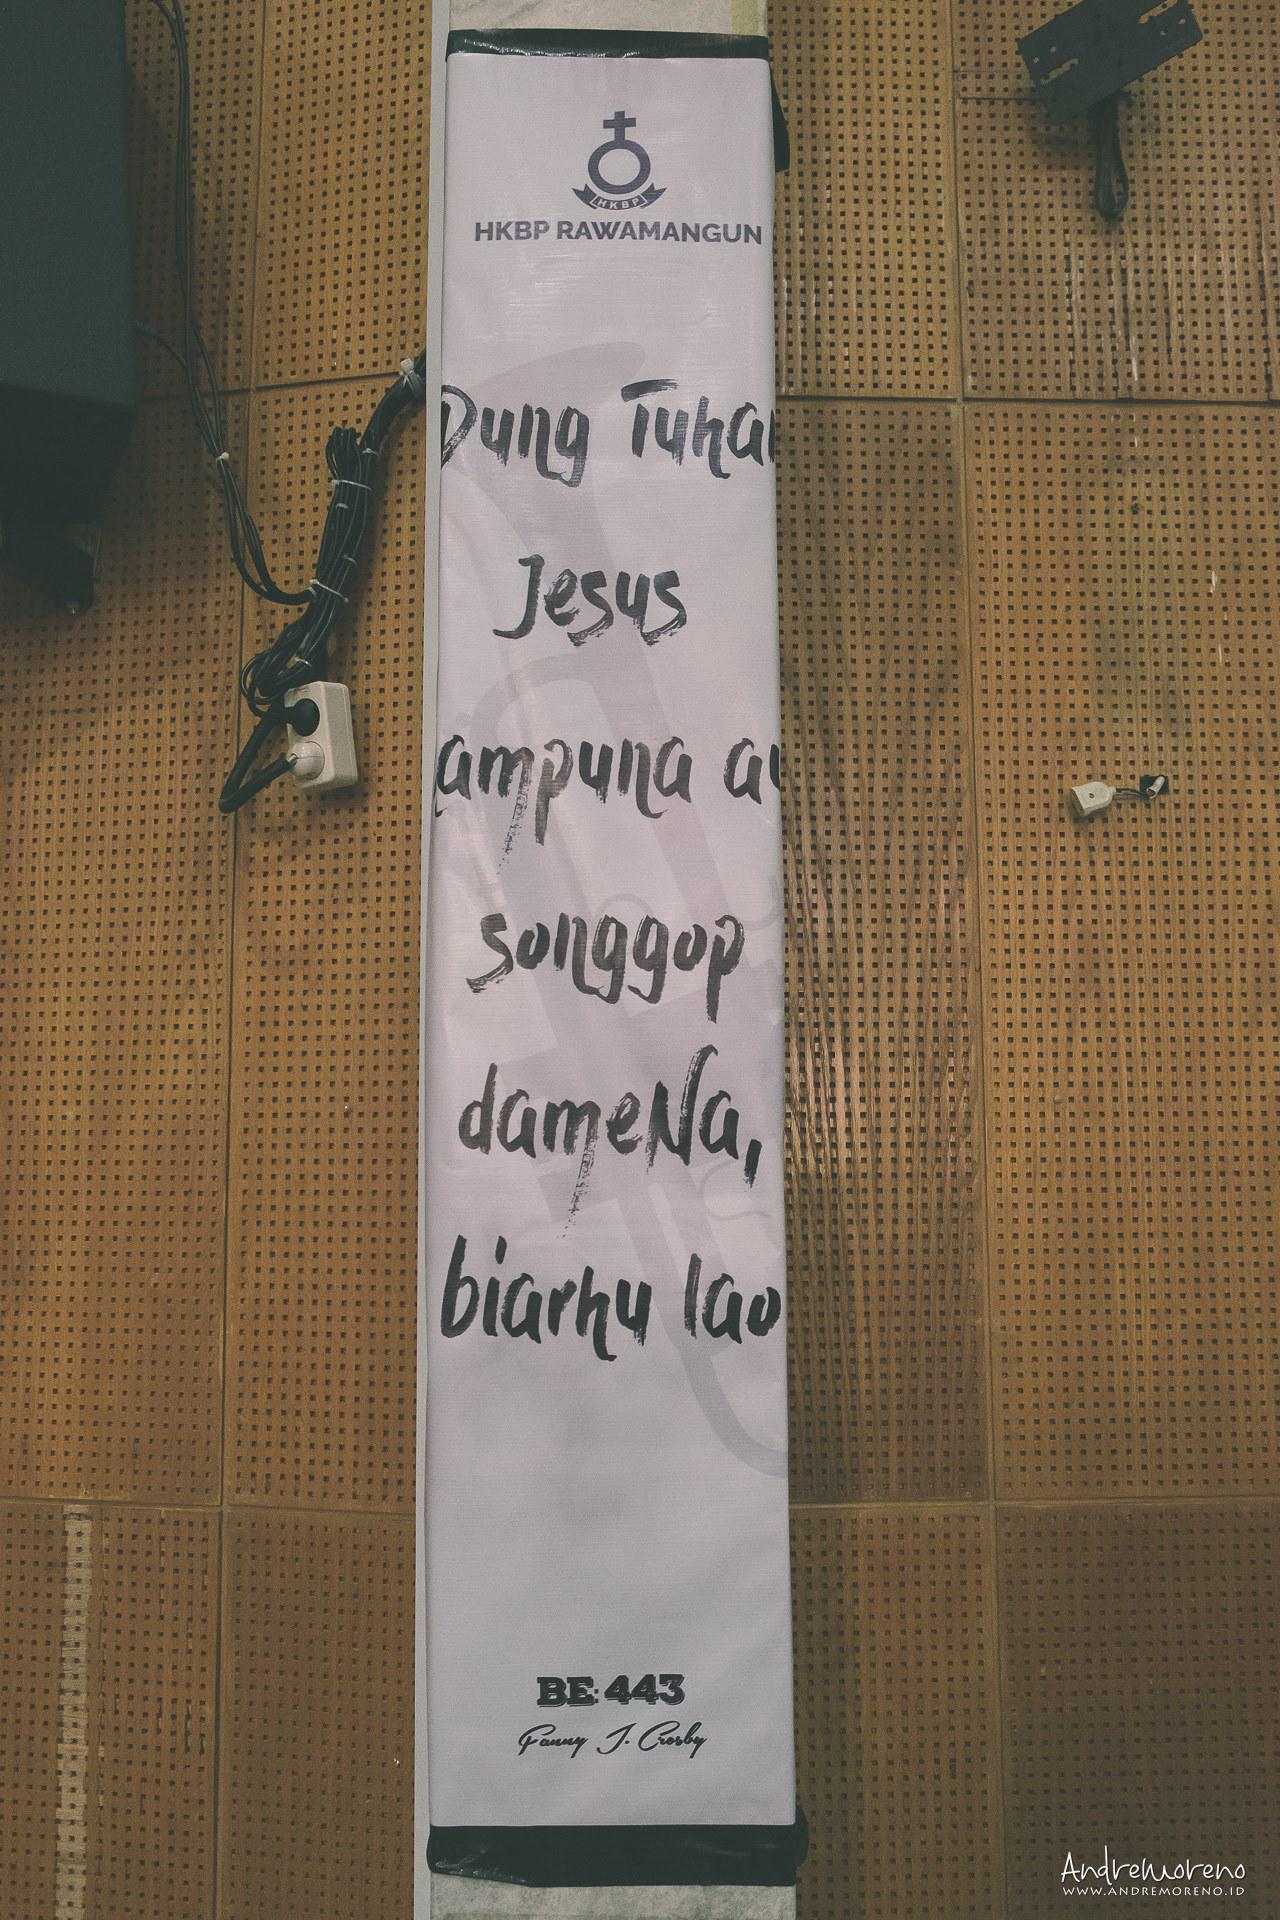 HKBP
HKBP RAWAMANGUN
Dung Tuha
Jesus
ampuna au
songgop
dameNa,
biarhu lao
BE: 443
Fanny J. Crosby
AndreMoreno
WWW.ANDREMORENO.ID